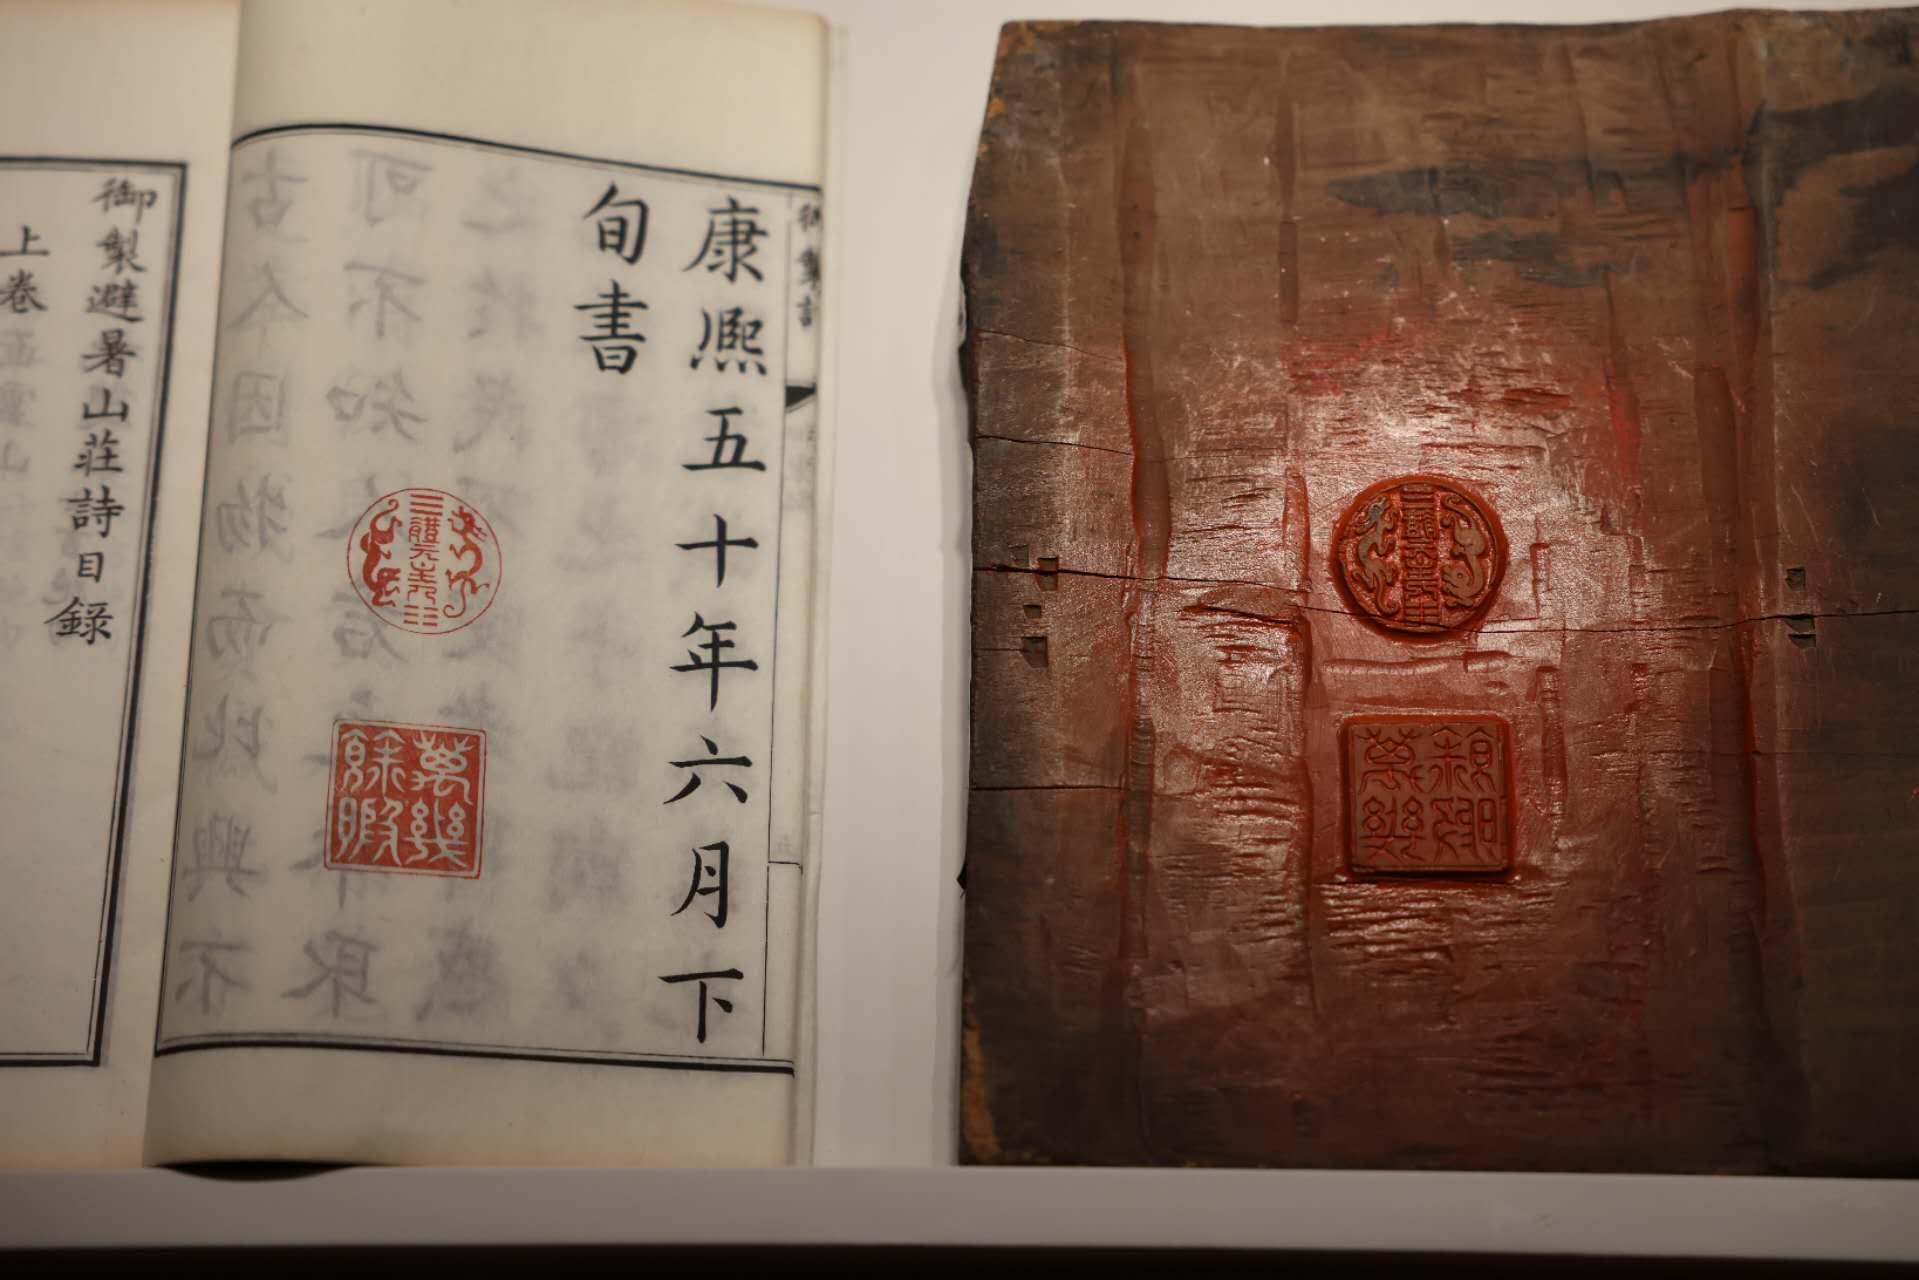 御製詩
康熙五十年六月下
旬書
體元主人
萬幾餘暇
御製避暑山莊詩目錄
上卷
體元主人
萬幾餘暇